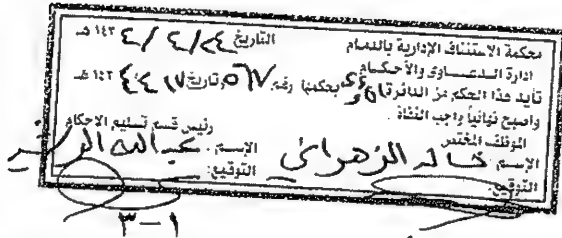 محكمة الاستئناف الإدارية بالدمام التاريخ ٢٤ / ٤ / ١٤٣٤ هـ
إدارة الدعاوى والأحكام
تأيد هذا الحكم من الدائرة بحكمها رقم ٥٦٧ وتاريخ ١٧ ١٤٣ هـ
واصبح نهائياً واجب النفاذ .
الموظف المختص رئيس قسم تسليم الاحكام
الإسم . خالد الزهراني الإسم . عبدالله
التوقيع: التوقيع:
١-٣